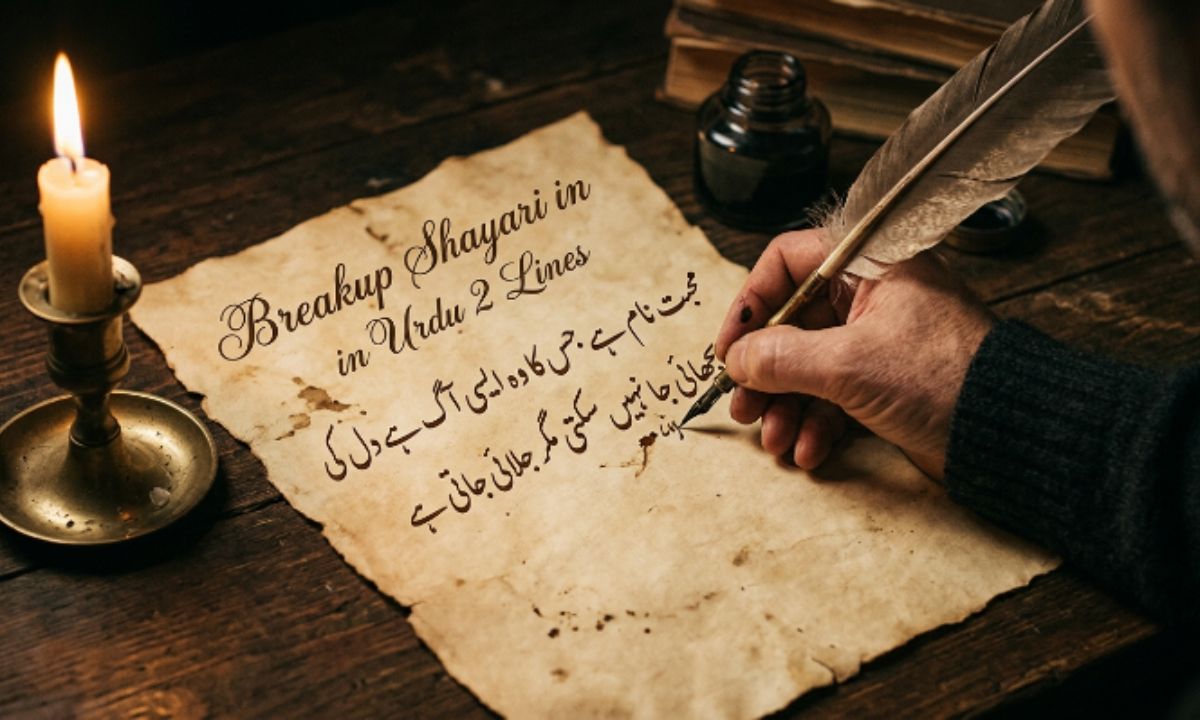 Breakup Shayari in
in Urdu 2 Lines
محبت نام ہے جس کا وہ ایسی آگ ہے دل کی
بجھائی جا نہیں سکتی مگر جلائی جاتی ہے